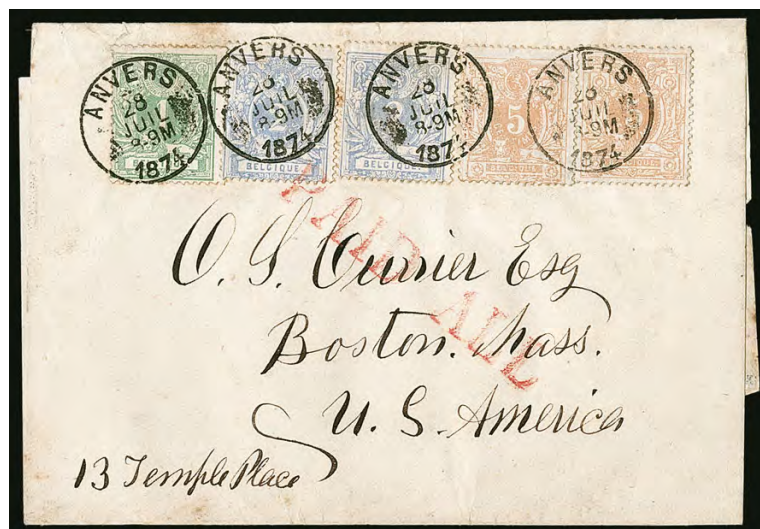 ANVERS
28
JUIL
8-9M
1874
ANVERS
28
JUIL
8-9M
1874
ANVERS
28
JUIL
8-9M
1874
ANVERS
28
JUIL
8-9M
1874
BELGIQUE
BELGIQUE
5
PAID ALL
O. S. Currier Esq
Boston. Mass.
U. S. America
13 Temple Place